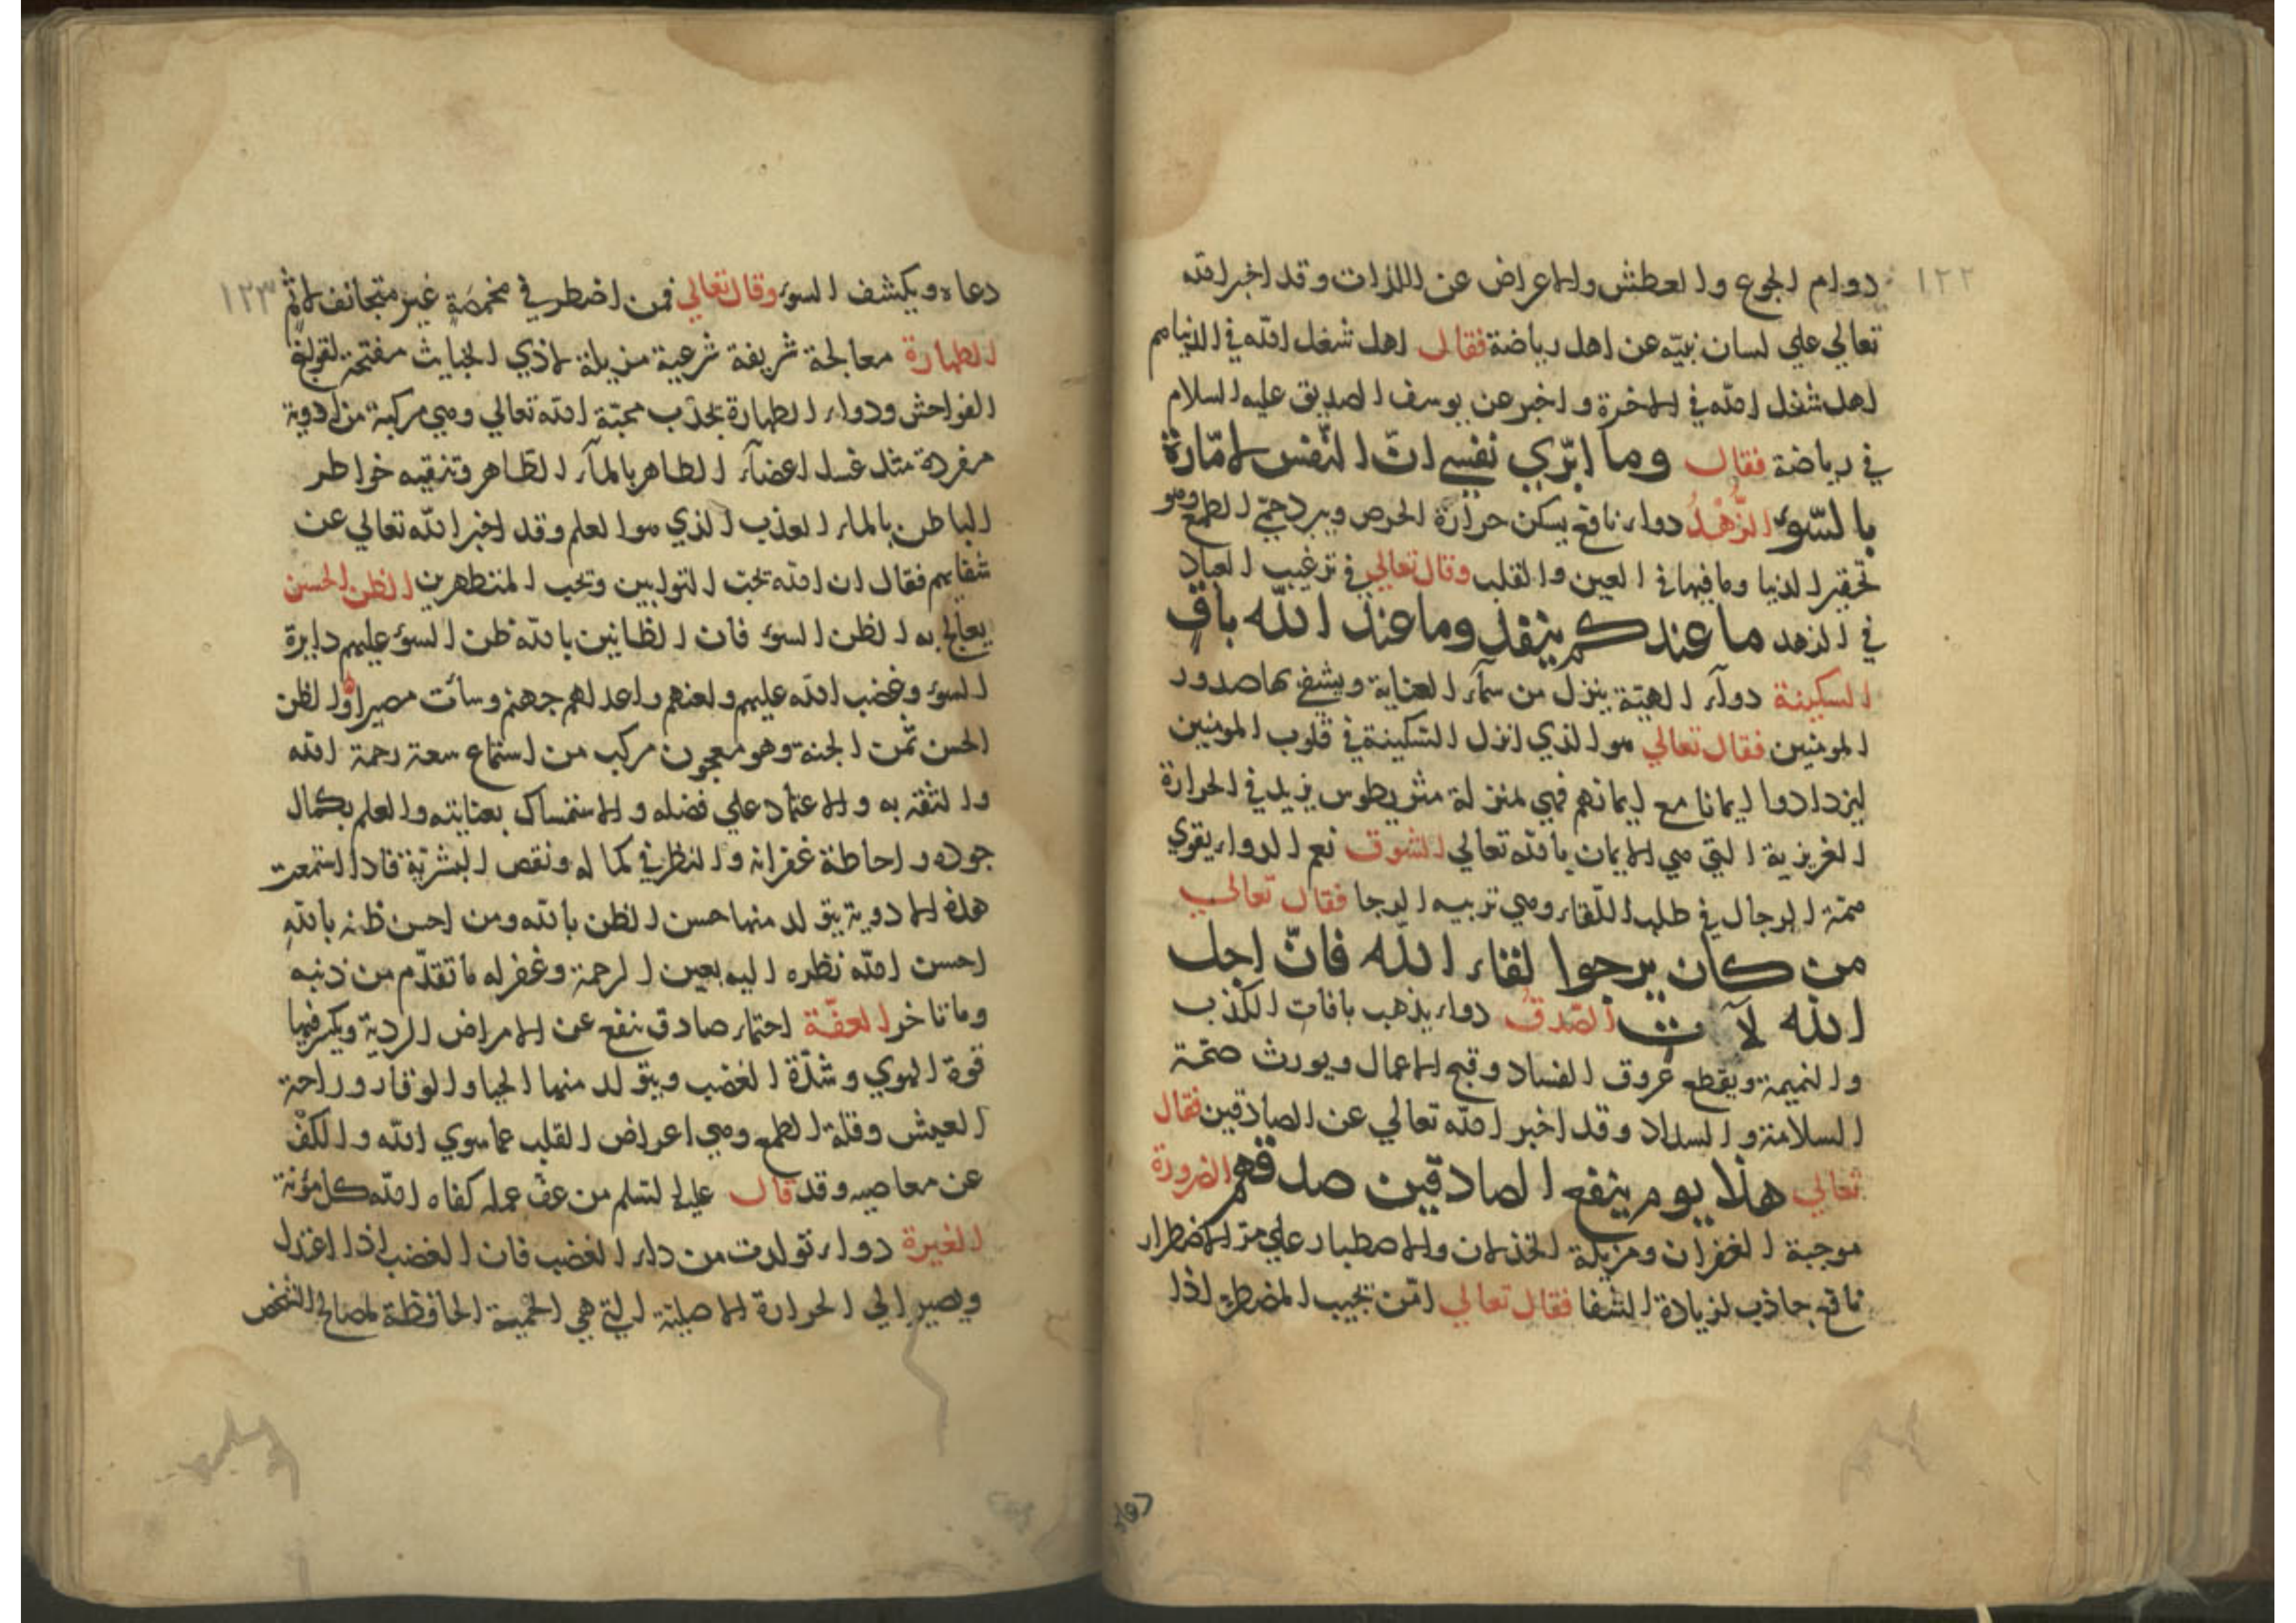 ١٢٢
دوام الجوع والعطش والاعراض عن اللذات وقد اخبر الله
تعالي علي لسان نبيّه عن اهل رياضة فقال اهل شغل الله في الدنيا هم
اهل شغل الله في الاخرة واخبر عن يوسف الصديق عليه السلام
في رياضة فقال وما ابرّي نفسي انّ النّفس لامّارة
بالسّوء الزُّهْدُ دواء نافع يسكن حرارة الحرص ويبرد حمّي الطمع وهو
تحقير الدنيا وما فيها في العين والقلب وقال تعالي في ترغيب العباد
في الزهد ما عندكم ينفد وما عند الله باقٍ
السكينة دوآء الهيّة ينزل من سمآء العناية ويشفي بها صدور
المومنين فقال تعالي هو الذي انزل السّكينة في قلوب المومنين
ليزدادوا ايمانا مع ايمانهم فهي لمنزلة مثريطوس يزيد في الحرارة
الغريزية التي هي الايمان بالله تعالي الشوق نعم الدواء يقوي
همّة الرجال في طلب اللّقاء وهي تربيه الرجا فقال تعالي
من كان يرجوا لقاء الله فانّ اجل
الله لآت الصّدقُ دواء يذهب بافات الكذب
والنميمة ويقطع عروق الفساد وقبح الاعمال ويورث صحّة
السلامة والسداد وقد اخبر الله تعالي عن الصادقين فقال
تعالي هذا يوم ينفع الصادقين صدقهم الضرورة
موجبة الغفران ومزيلة الخذلان والاصطبار علي مرّ الاضطرار
نافع جاذب لزيادة الشفا فقال تعالي امّن يجيب المضطر اذا
دعاه
١٢٣
دعاه ويكشف السوء وقال تعالي فمن اضطر في مخمصَةٍ غير متجانف لاثم
الطهارة معالجة شريفة شرعية مزيلة لاذي الخبايث مفتحة لقولنج
الفواحش ودواء الطهارة يجذب محبّة الله تعالي وهي مركبة من ادوية
مفردة مثل غسل اعضآء الظاهر بالمآء الظاهر وتنقيه خواطر
الباطن بالماء العذب الذي هو العلم وقد اخبر الله تعالي عن
شفايهم فقال ان الله يحبّ التوابين ويحب المتطهرين الظن الحسن
يعالج به الظن السوء فان الظانين بالله ظن السوء عليهم دايرة
السوء وغضب الله عليهم ولعنهم واعد لهم جهنم وسأت مصيرا والظن
الحسن ثمن الجنة وهو معجون مركب من استماع سعة رحمة الله
والثقة به والاعتماد علي فضله والاستمساك بعنايته والعلم بكمال
جوده واحاطة غفرانه والنظر في كماله ونقص البشريّة فاذا استمعت
هذه الادوية يتولد منها حسن الظن بالله ومن احسن ظنه بالله
احسن الله نظره اليه بعين الرحمة وغفر له ما تقدّم من ذنبه
وما تاخر العفّة احتماء صادق ينفع عن الامراض الردية ويكسر فيها
قوة الهوي وشدّة الغضب ويتولد منها الحيا والوقار وراحة
العيش وقلة الطمع وهي اعراض القلب عما سوي الله والكفّ
عن معاصيه وقد قال عليه السلم من عفّ عمله كفاه الله كل مؤنة
الغيرة دواء تولدت من داء الغضب فان الغضب اذا اعتدل
ويصير الي الحرارة الاصليّة التي هي الحميّة الحافظة لمصالح الشخص